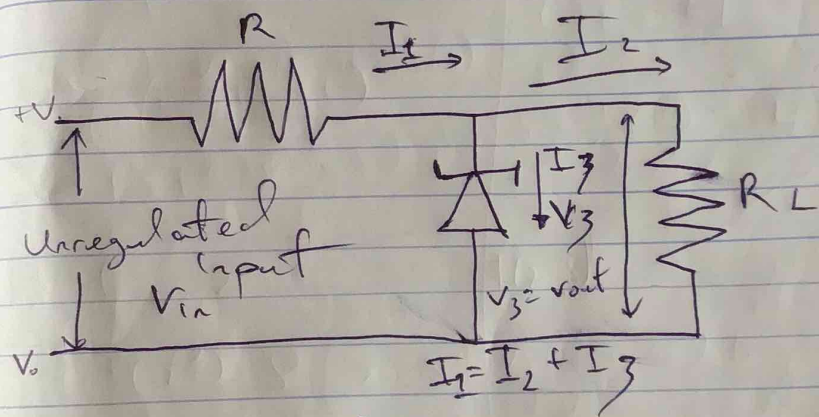 R
I1
I2
+V
I3
V3
RL
Unregulated
input
Vin
V3 = Vout
V.
I1 = I2 + I3